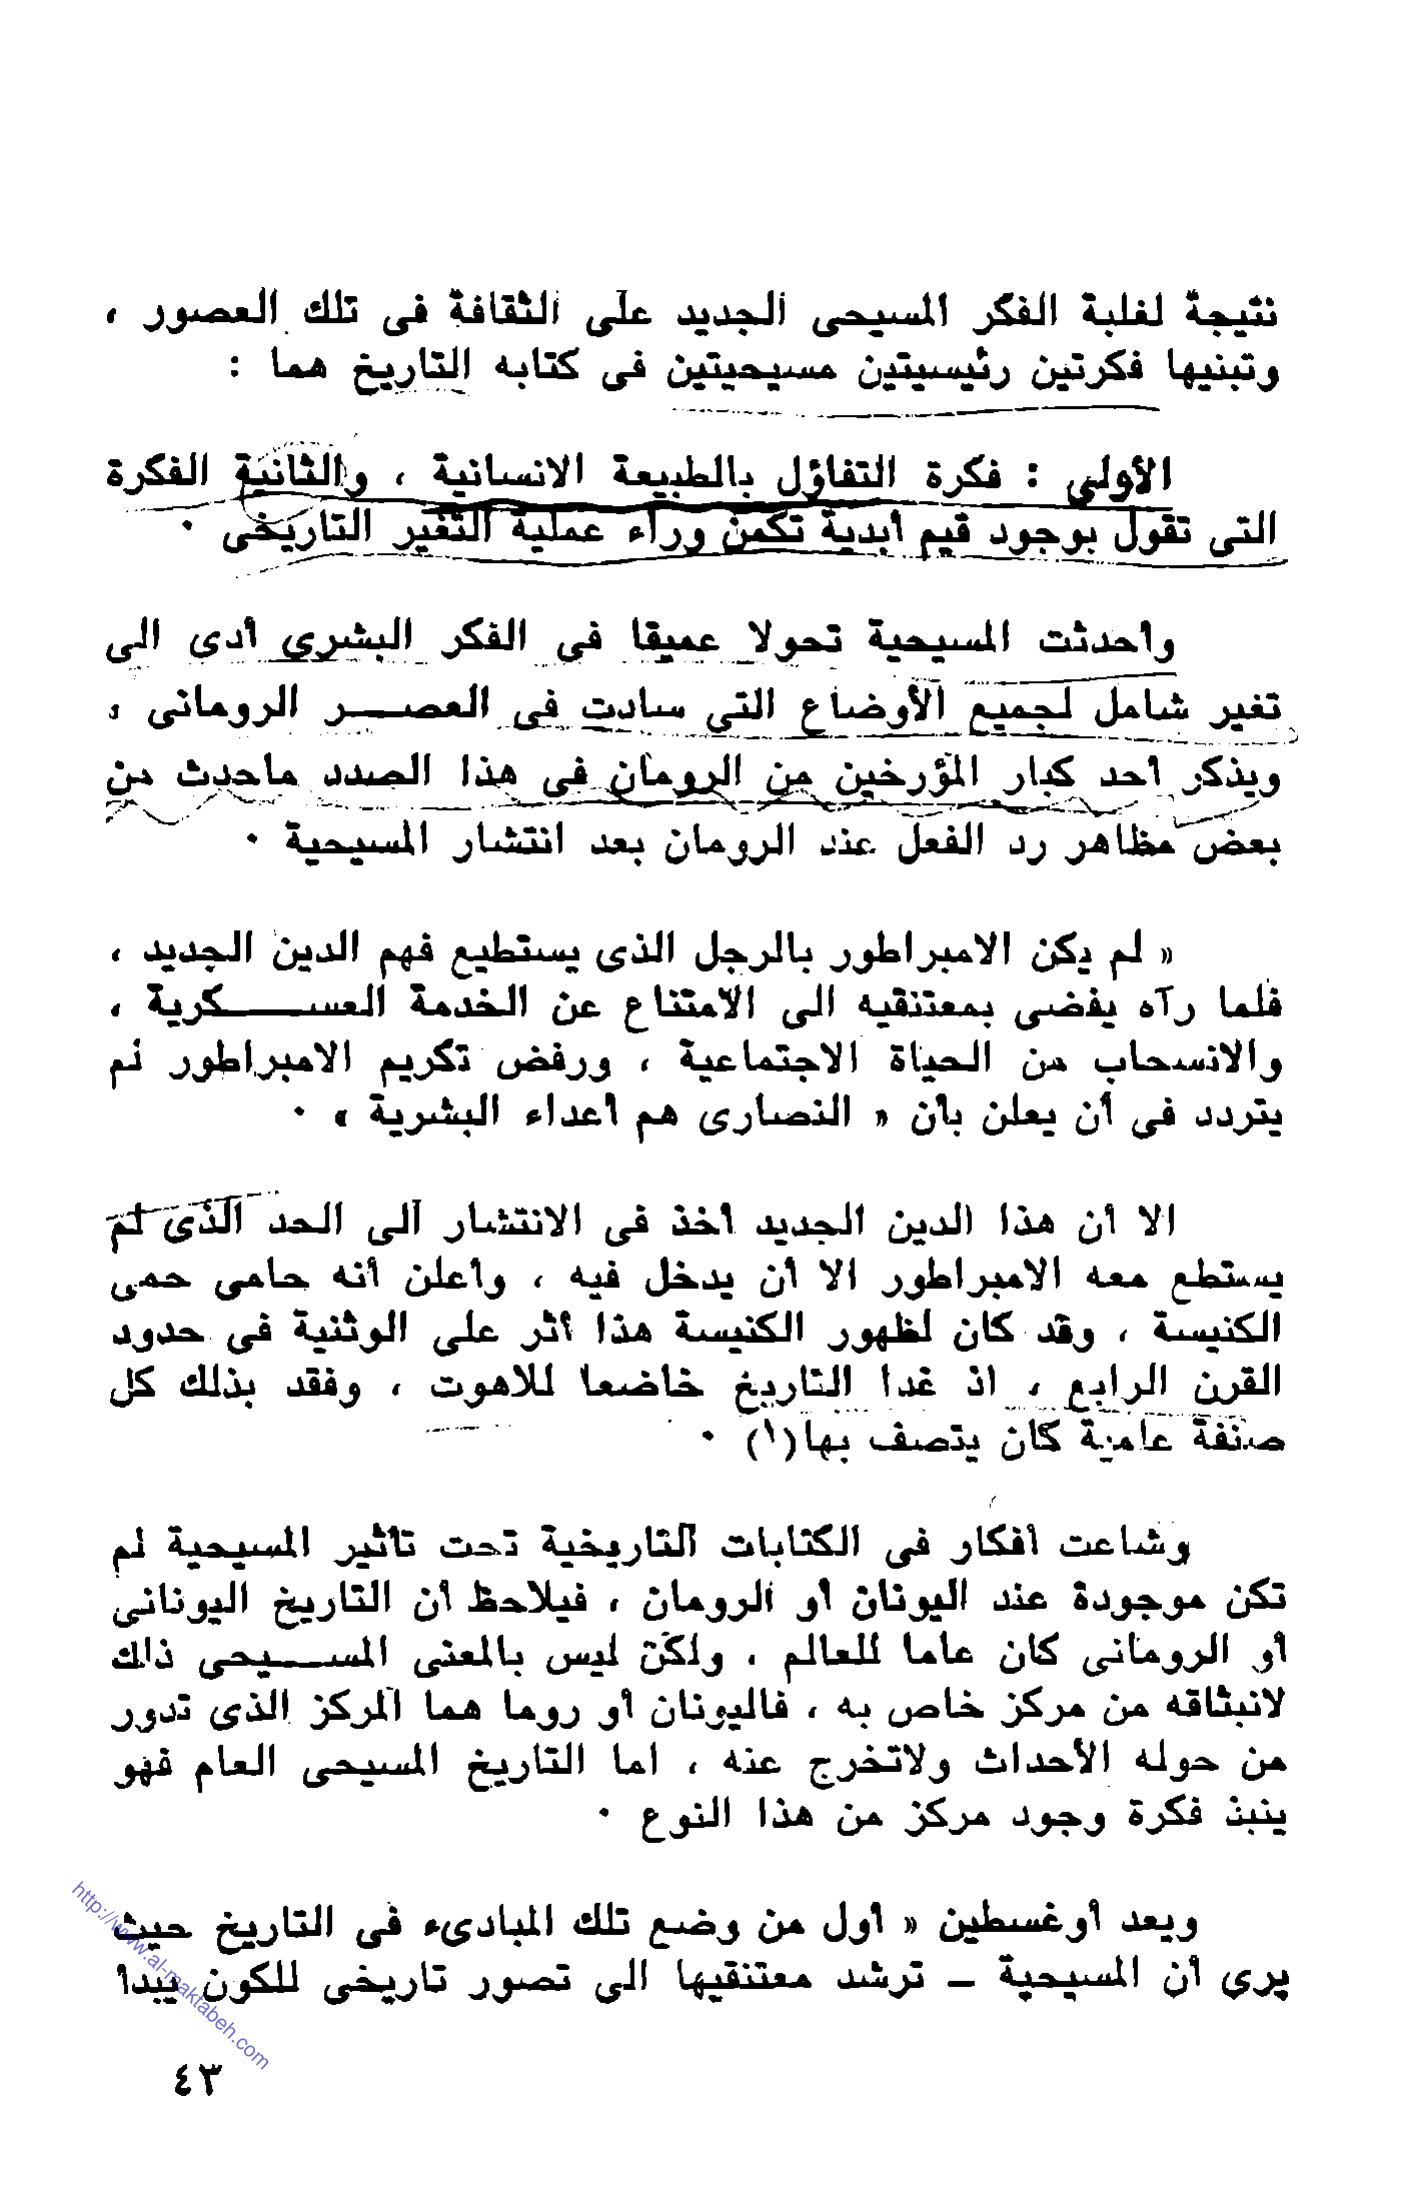 نتيجة لغلبة الفكر المسيحى الجديد على الثقافة فى تلك العصور ،
وتبنيها فكرتين رئسيتين مسيحيتين فى كتابه التاريخ هما :
الأولى : فكرة التفاؤل بالطبيعة الانسانية ، والثانية الفكرة
التى تقول بوجود قيم أبدية تكمن وراء عملية التغير التاريخى ٠
وأحدثت المسيحية تحولا عميقا فى الفكر البشرى أدى الى
تغير شامل لجميع الأوضاع التى سادت فى العصـــر الرومانى ،
ويذكر أحد كبار المؤرخين من الرومان فى هذا الصدد ماحدث من
بعض مظاهر رد الفعل عند الرومان بعد انتشار المسيحية ٠
« لم يكن الامبراطور بالرجل الذى يستطيع فهم الدين الجديد ،
فلما رآه يفضى بمعتنقيه الى الامتناع عن الخدمة العســـــكرية ،
والانسحاب من الحياة الاجتماعية ، ورفض تكريم الامبراطور لم
يتردد فى أن يعلن بأن « النصارى هم أعداء البشرية » ٠
الا أن هذا الدين الجديد أخذ فى الانتشار الى الحد الذى لم
يستطع معه الامبراطور الا أن يدخل فيه ، وأعلن أنه حامى حمى
الكنيسة ، وقد كان لظهور الكنيسة هذا أثر على الوثنية فى حدود
القرن الرابع ، اذ غدا التاريخ خاضعا للاهوت ، وفقد بذلك كل
صنفة عامية كان يتصف بها(١) ٠
وشاعت أفكار فى الكتابات التاريخية تحت تأثير المسيحية لم
تكن موجودة عند اليونان أو الرومان ، فيلاحظ أن التاريخ اليونانى
أو الرومانى كان عاما للعالم ، ولكن ليس بالمعنى المســـيحى ذلك
لانبثاقه من مركز خاص به ، فاليونان أو روما هما المركز الذى تدور
من حوله الأحداث ولاتخرج عنه ، اما التاريخ المسيحى العام فهو
ينبذ فكرة وجود مركز من هذا النوع ٠
ويعد أوغسطين « أول من وضع تلك المبادىء فى التاريخ حيث
يرى أن المسيحية – ترشد معتنقيها الى تصور تاريخى للكون يبدأ
http://www.al-maktabeh.com
٤٣